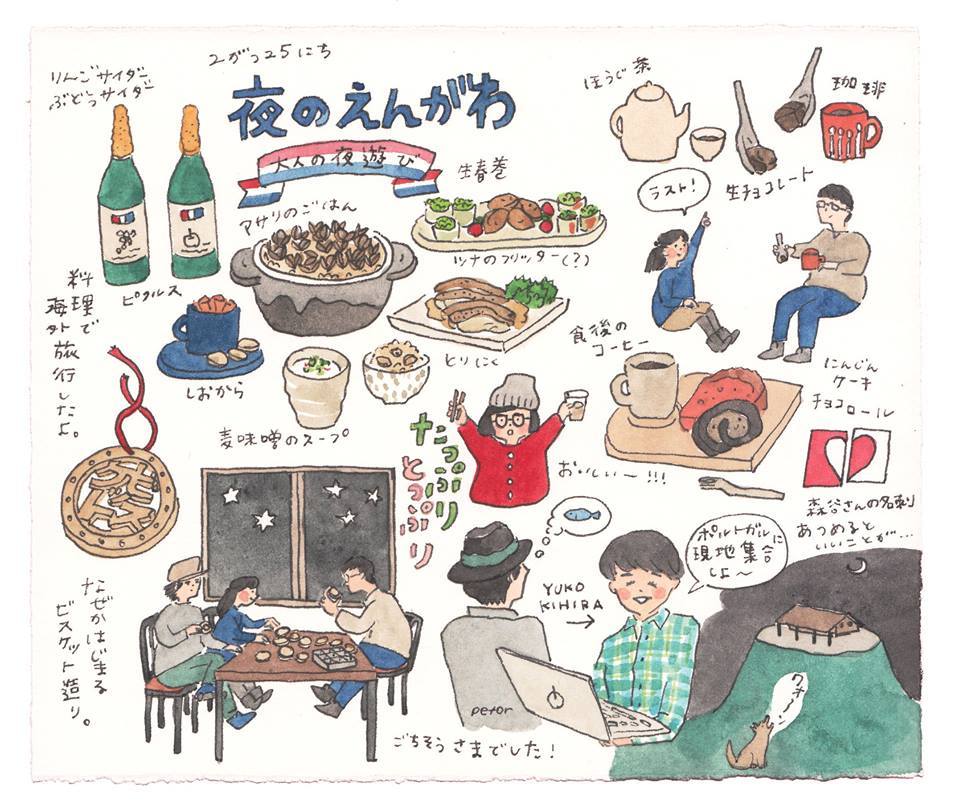 2がつ25にち
夜のえんがわ
大人の夜遊び
りんごサイダー
ぶどうサイダー
アサリのごはん
生春巻
ツナのフリッター(?)
ほうじ茶
珈琲
生チョコレート
ラスト!
料理で
海外旅行したよ。
ピクルス
しおから
とりにく
麦味噌のスープ
食後の
コーヒー
にんじん
ケーキ
チョコロール
たっぷり
とっぷり
おいしい〜!!!
森谷さんの名刺
あつめると
いいことが…
ポルトガルに
現地集合
しよ〜
YUKO
KIHIRA
なぜかはじまる
ビスケット造り。
peter
ごちそうさまでした!